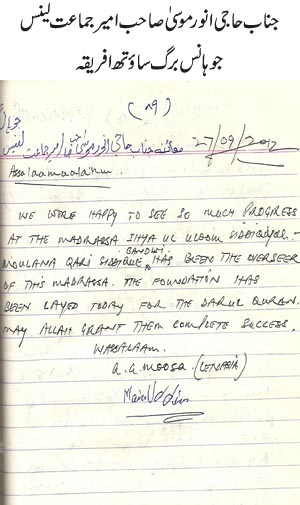 جناب حاجی انور موسیٰ صاحب امیر جماعت لینس
جوہانس برگ ساؤتھ افریقہ
(۸۹)
معائنہ جناب حاجی انور موسیٰ صاحب امیر جماعت لینس
27/09/2012
Assalaamoalaikum.
WE WERE HAPPY TO SEE SO MUCH PROGRESS
AT THE MADRASSA IHYA UL ULOOM SIDDIQUIYAH.-
MOULANA QARI SIDDIQUE BANDWI HAS BEEN THE OVERSEER
OF THIS MADRASSA. THE FOUNDATION HAS
BEEN LAYED TODAY FOR THE DARUL QURAN.
MAY ALLAH GRANT THEM COMPLETE SUCCESS.
WASSALAAM.
A. A. MOOSA. (LENASIA)